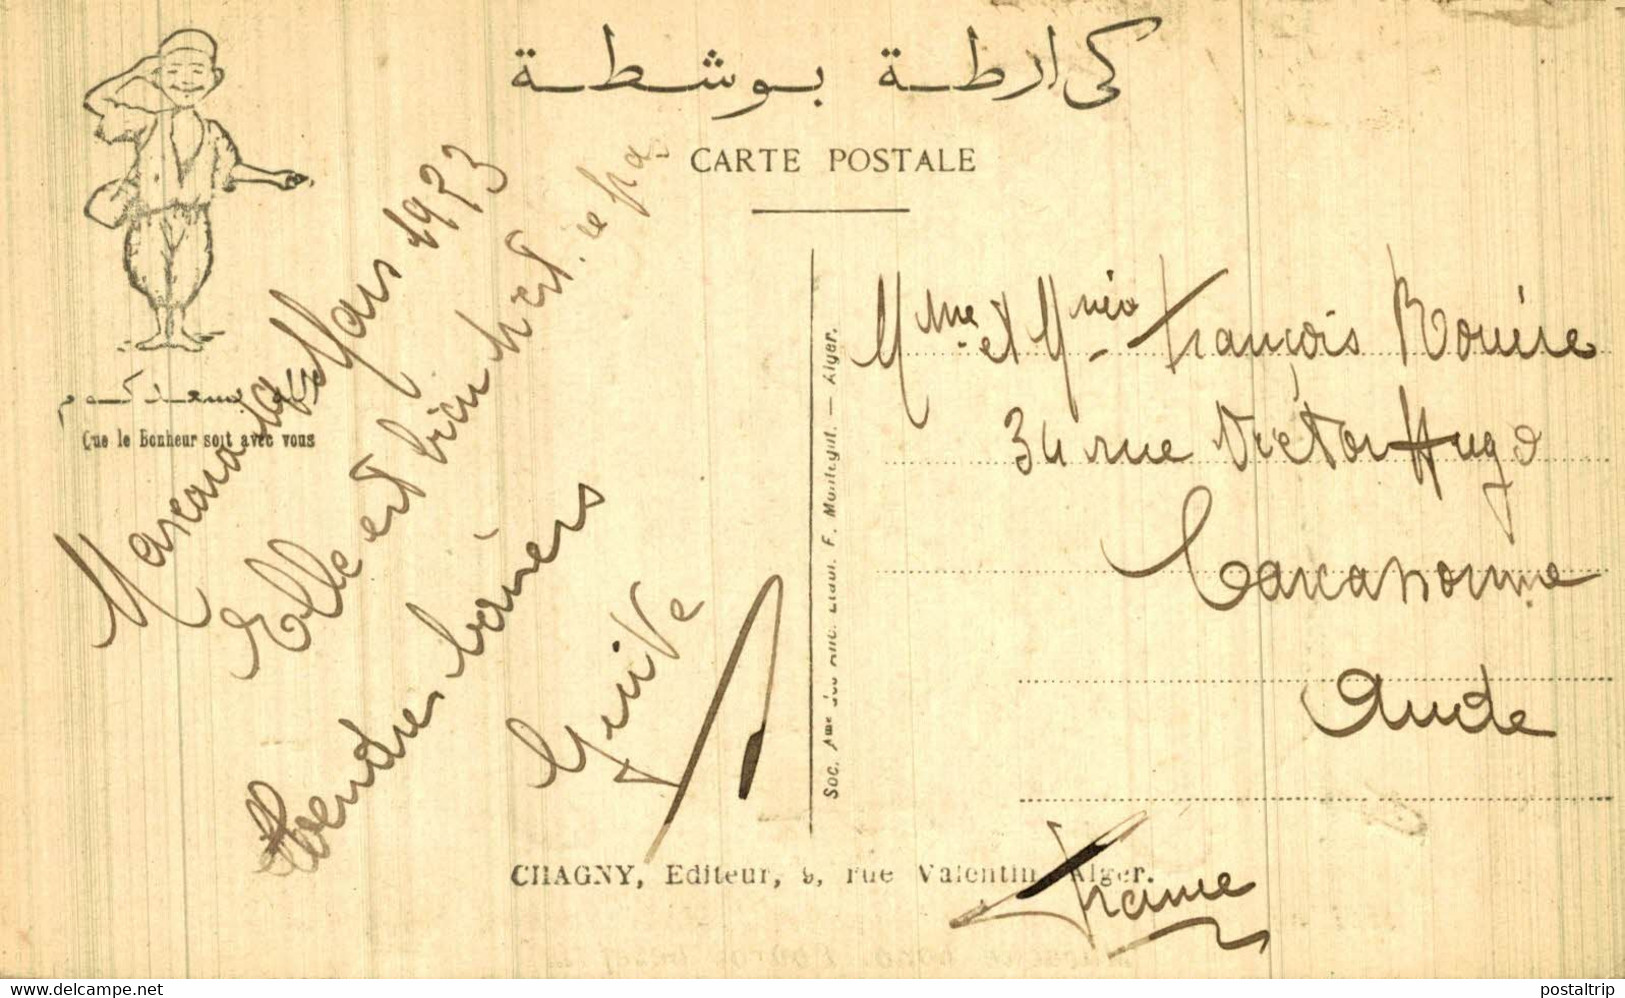 كارطة بوسطة
CARTE POSTALE
Que le Bonheur soit avec vous
Mascara le Mars 1923
Elle est bien n'est-ce pas
Tendres baisers
Guite
Soc. Ame des Anc. Etabl. F. Montégut. — Alger.
Mme et Mr François Rouire
34 rue Victor Hugo
Carcassonne
Aude
France
CHAGNY, Editeur, 9, rue Valentin, Alger.
postaltrip